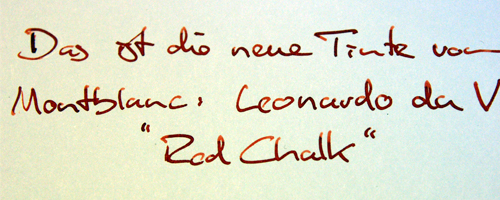 Das ist die neue Tinte von
Montblanc: Leonardo da V
"Red Chalk"